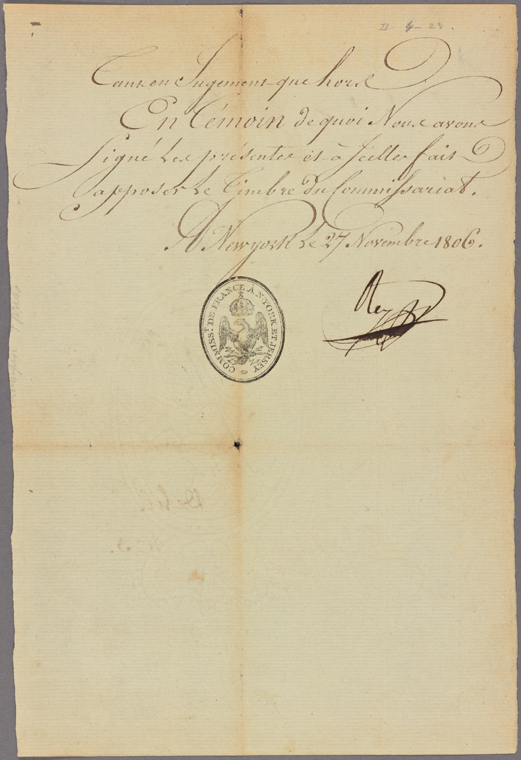 II - 4 - 23.
Tant en Jugement que hors
En Témoin de quoi Nous avons
Signé Les présentes et à Icelles fait
apposer Le Timbre du Commissariat.
A Newyork Le 27 Novembre 1806.
Rey
COMMISS. DE FRANCE À N. YORK ET JERSEY